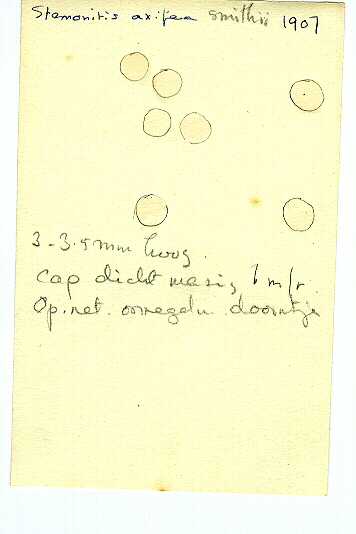 Stemonitis axifera smithii 1907
3-3.5 mm hoog.
Cap dicht mazig
Op. net. onregelm doorntjes